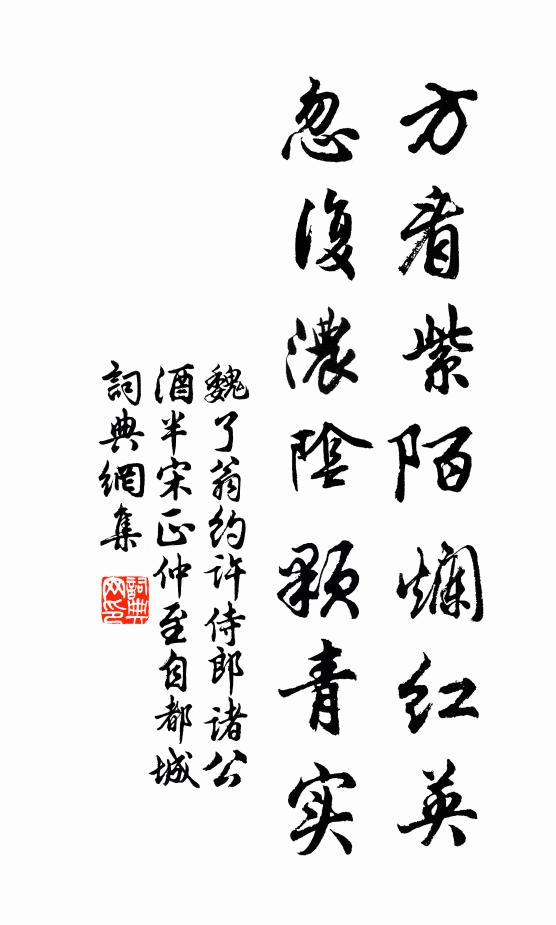 方看紫陌烂红英
忽复濃陰顆青实
魏了翁約許侍郎諸公
酒半宋正仲至自都城
詞典網集
詞典
网印